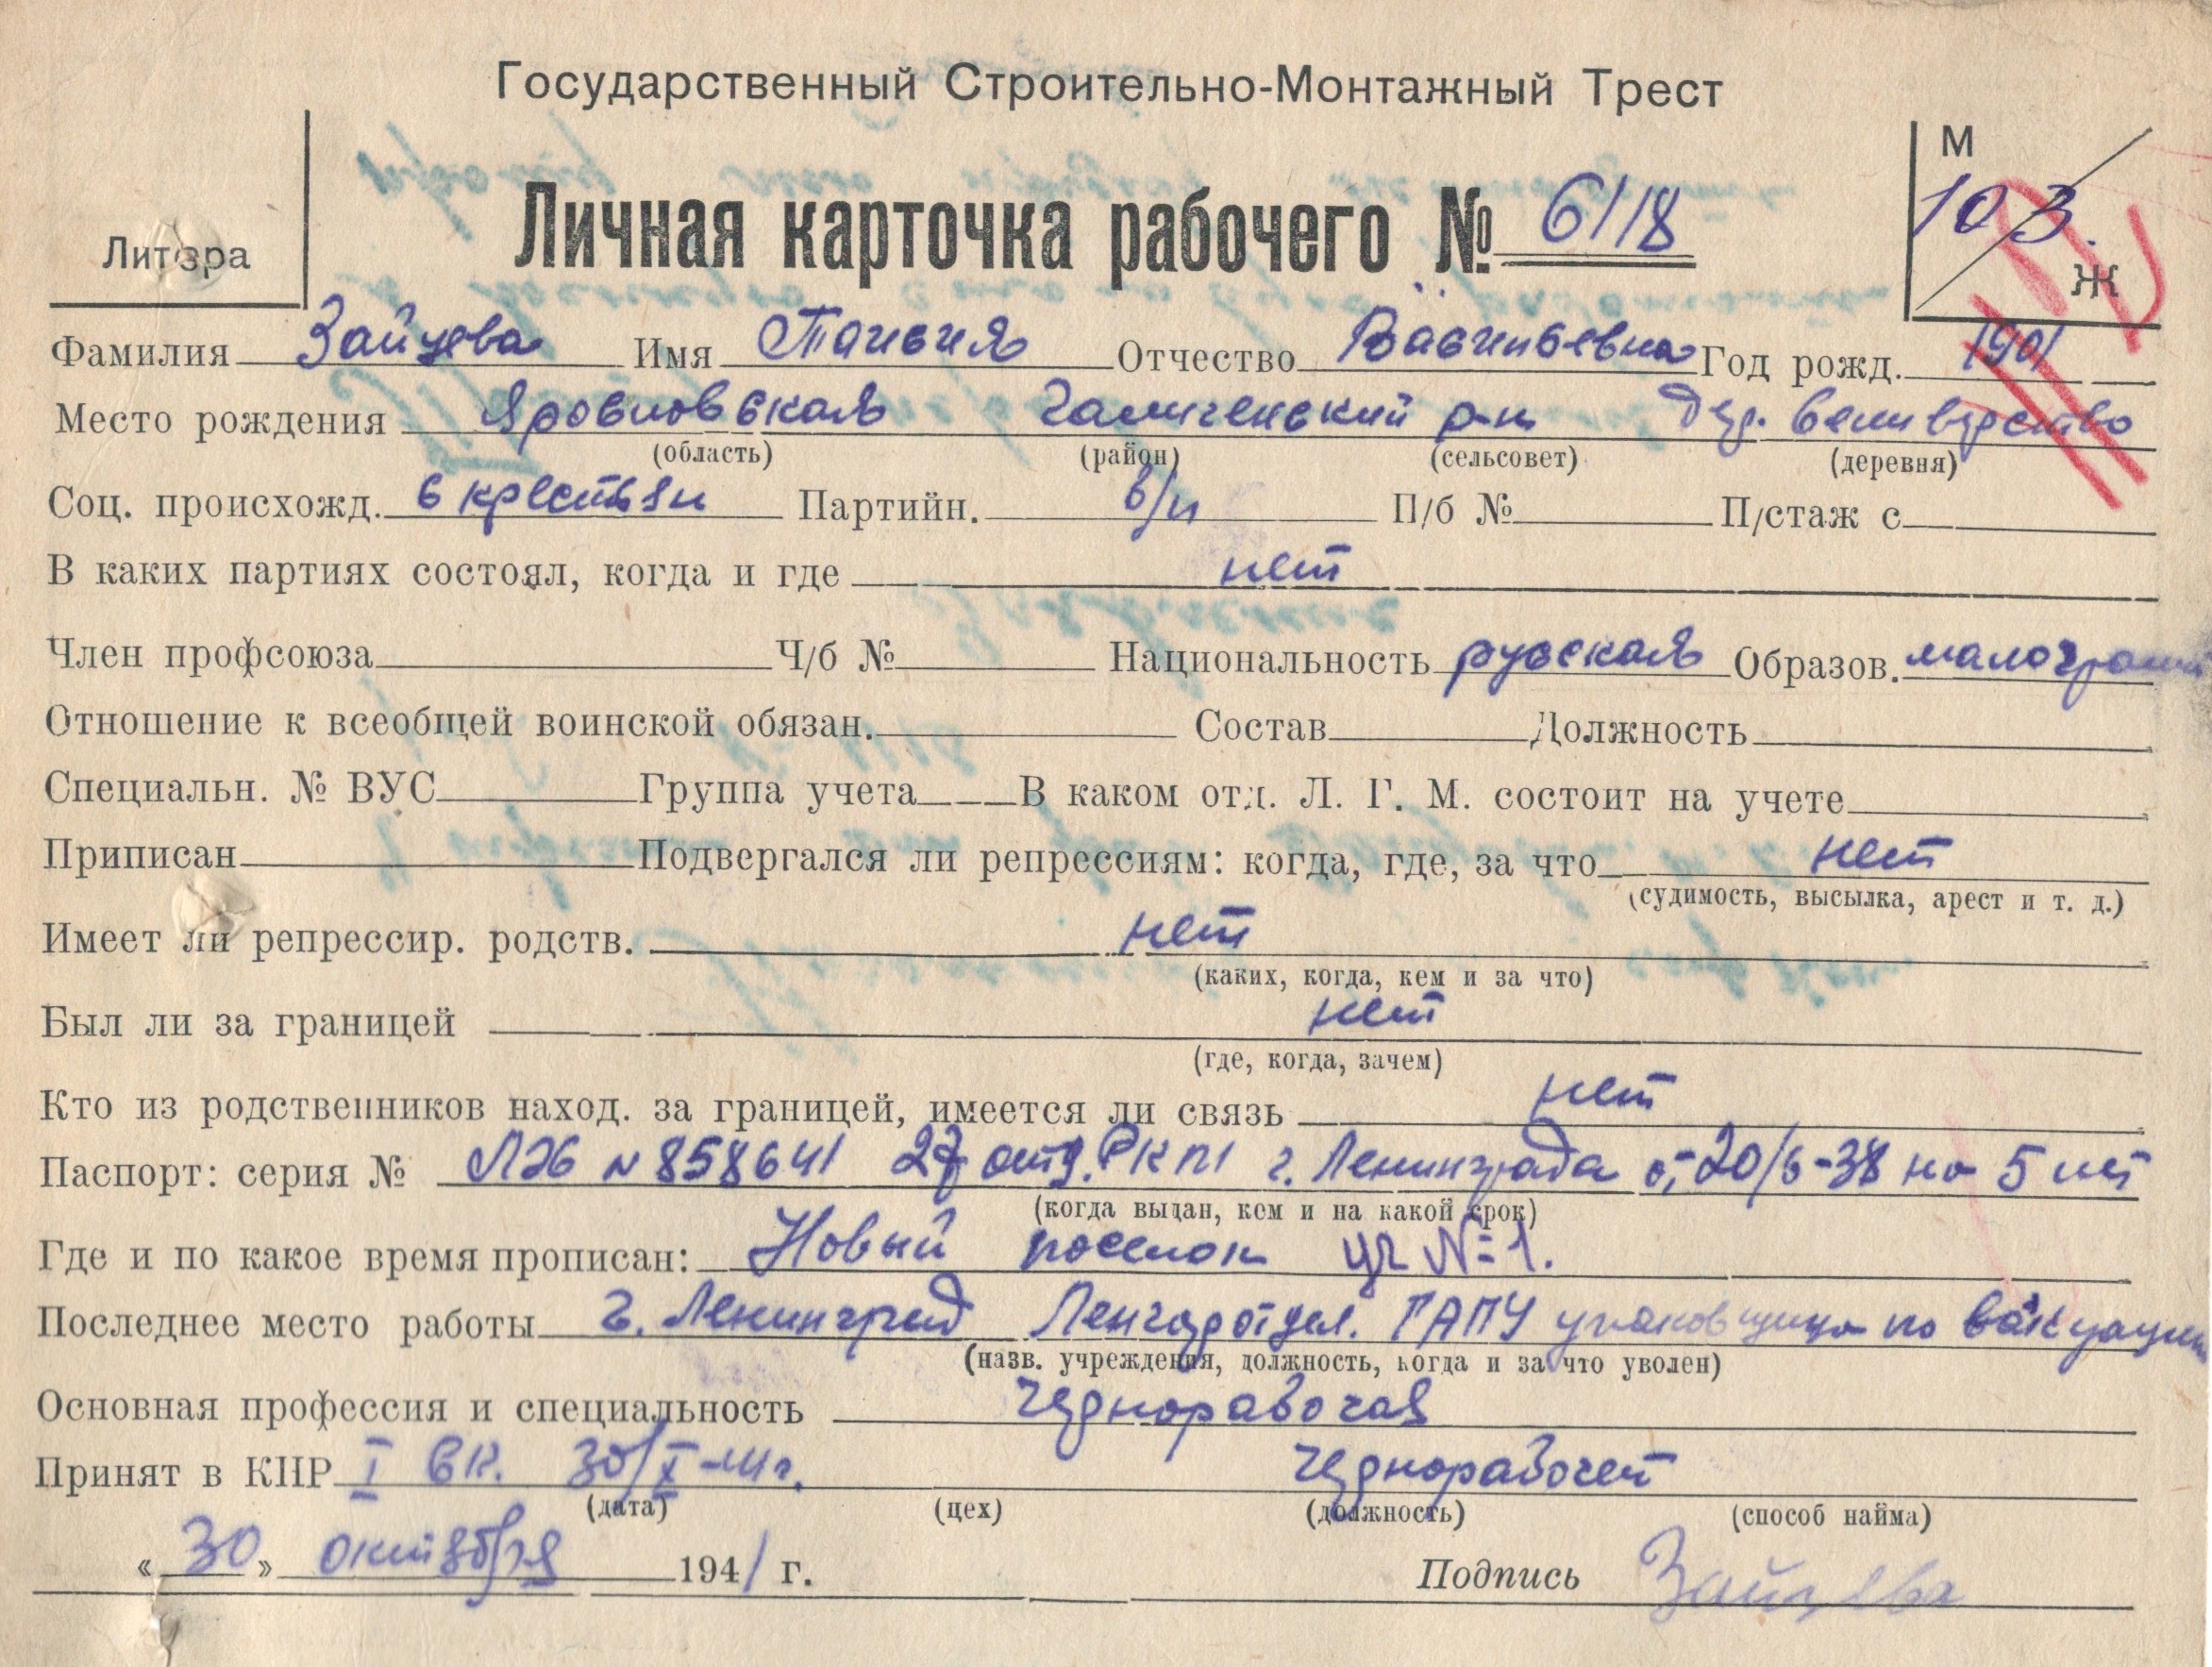 Государственный Строительно-Монтажный Трест
М
10 З.
Ж
Литера
Личная карточка рабочего № 6118
Фамилия Зайцева Имя Таисия Отчество Васильевна Год рожд. 1901
Место рождения Ярославская Галиченский р-н дер. Селиверство
(область) (район) (сельсовет) (деревня)
Соц. происхожд. б крестьян Партийн. б/п П/б № П/стаж с
В каких партиях состоял, когда и где нет
Член профсоюза Ч/б № Национальность русская Образов. малограм
Отношение к всеобщей воинской обязан. Состав Должность
Специальн. № ВУС Группа учета В каком отд. Л. Г. М. состоит на учете
Приписан Подвергался ли репрессиям: когда, где, за что нет
(судимость, высылка, арест и т. д.)
Имеет ли репрессир. родств. нет
(каких, когда, кем и за что)
Был ли за границей нет
(где, когда, зачем)
Кто из родственников наход. за границей, имеется ли связь нет
Паспорт: серия № № 858641 27 отд. РКМ г. Ленинграда от 20/6-38 на 5 лет
(когда выдан, кем и на какой срок)
Где и по какое время прописан: Новый поселок № 1.
Последнее место работы г. Ленинград Ленгоротдел. упаковщица по
(назв. учреждения, должность, когда и за что уволен)
Основная профессия и специальность чернорабочая
Принят в КПР I 30/X-41г. чернорабочей
(дата) (цех) (должность) (способ найма)
« 30 » октября 1941 г. Подпись Зайцева